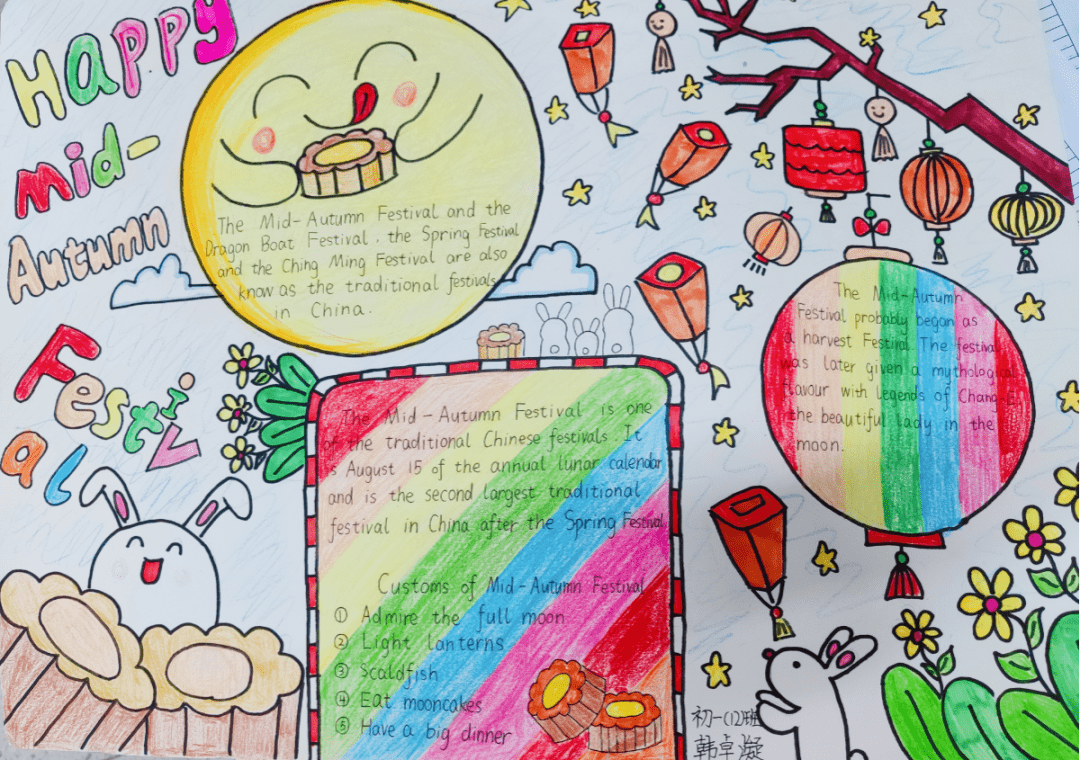 Happy
Mid-
Autumn
Festiv
al
The Mid-Autumn Festival and the
Dragon Boat Festival, the Spring Festival
and the Ching Ming Festival are also
know as the traditional festivals
in China.
The Mid-Autumn
Festival probably began as
a harvest Festival. The festival
was later given a mythological
flavour with legends of Chang-E
the beautiful lady in the
moon.
The Mid-Autumn Festival is one
of the traditional Chinese festivals. It
is August 15 of the annual lunar calendar
and is the second largest traditional
festival in China after the Spring Festival
Customs of Mid-Autumn Festival
① Admire the full moon
② Light lanterns
③ Scaldfish
④ Eat mooncakes
⑤ Have a big dinner
初一(12)班
韩卓凝